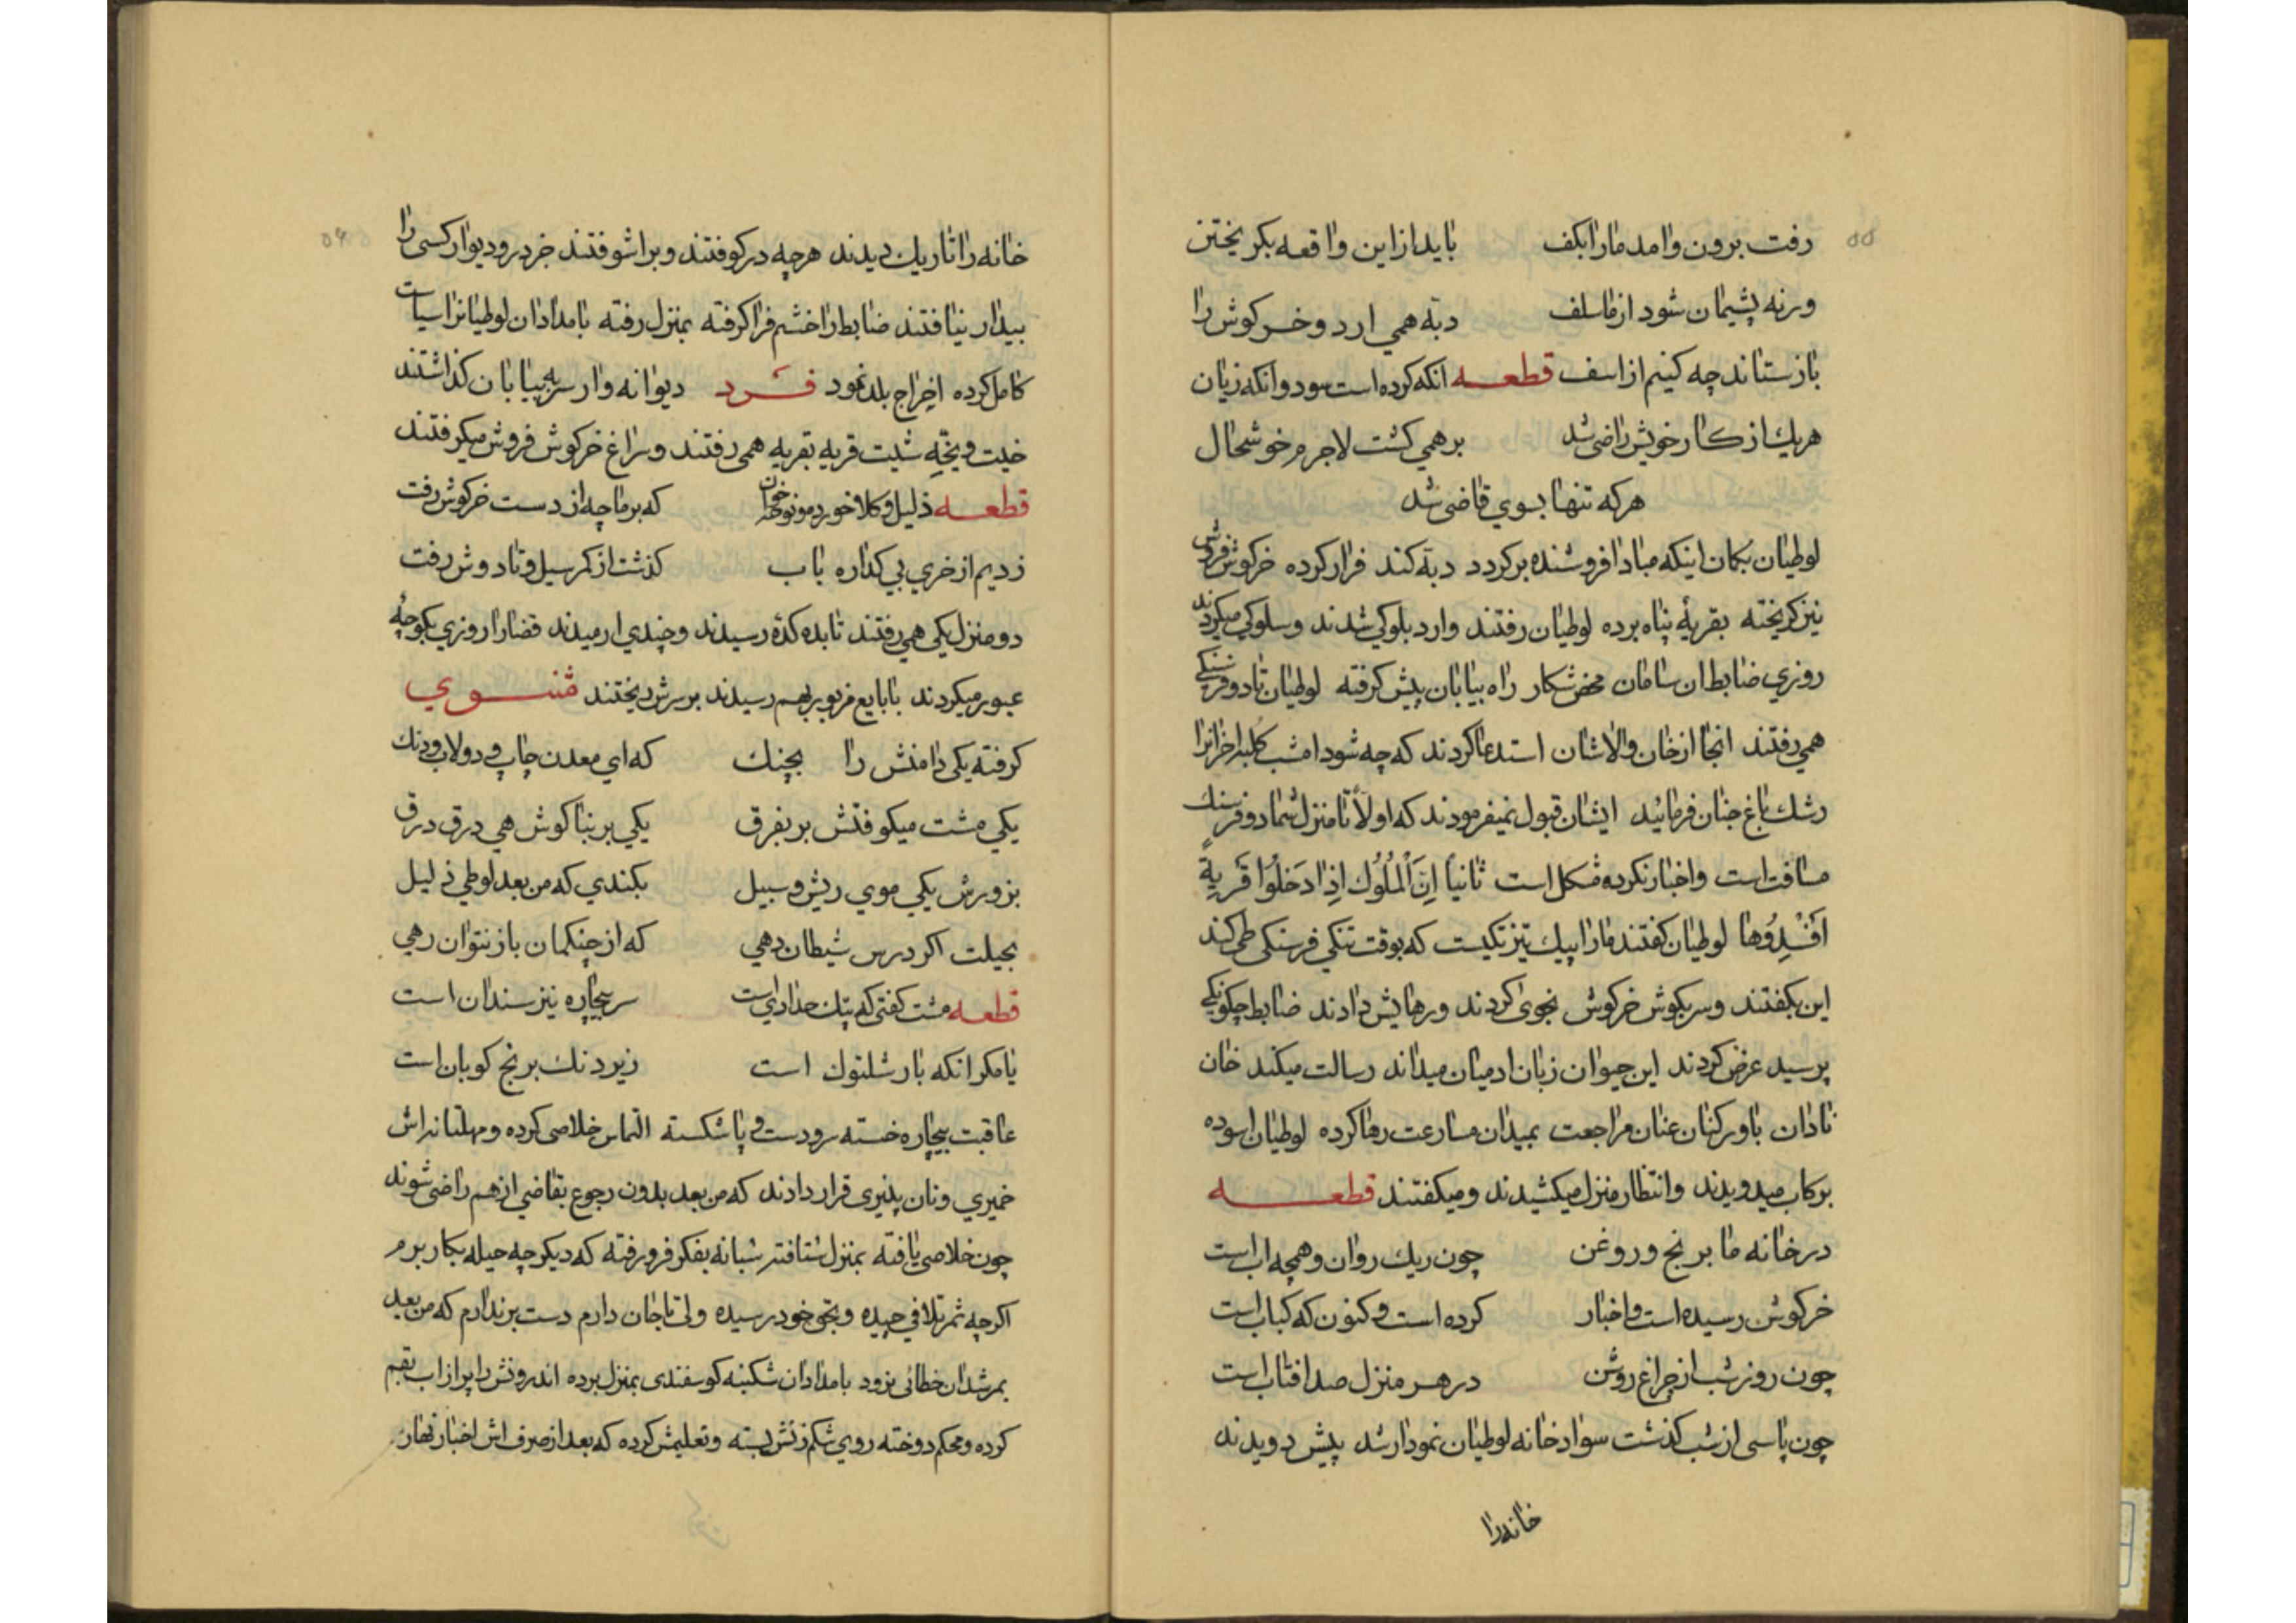 ۵۵
رفت برون وامد مارا بکف بايد از اين واقعه بکريختن
ورنه پشيمان شود از ما سلف دبه همي ارد و خرکوش را
باز ستاند چه کنيم از اسف قطعه انکه کرده است سود وانکه زيان
هريك از کار خويش راضي شد بر همي کشت لاجرم خوشحال
هرکه تنها بسوي قاضي شد
لوطيان بکمان اينکه مبادا فروشنده برکردد دبه کند فرار کرده خرکوش فروش
نيز کريخته بقريهٔ پناه برده لوطيان رفتند وارد بلوکي شدند وسلوکي ميکردند
روزي ضابط ان سامان محض شکار راه بيابان پيش کرفته لوطيان تا دو فرسنکي
همي رفتند انجا از خان والاشان استدعا کردند که چه شود امشب کلبه احزانرا
رشك باغ جنان فرمائيد ايشان قبول نميفرمودند که اولاً تا منزل شما دو فرسنك
مسافت است واخبار نکرده مشکل است ثانياً اِنَّ اَلْمُلُوُك اِذٰا دَخَلُوٰا قَريةٍ
اَفْسَدُوُها لوطيان کفتند مارا پيك تيز تکيست که بوقت تنکي فرسنکي طي کند
اين بکفتند وسر بکوش خرکوش نجوي کردند ورهايش دادند ضابط چکونکي
پرسيد عرض کردند اين حيوان زبان ادميان ميداند رسالت ميکند خان
نادان باور کنان عنان مراجعت بميدان مسارعت رها کرده لوطيان اسوده
برکاب ميدويدند وانتظار منزل ميکشيدند وميکفتند قطعه
در خانه ما برنج وروغن چون ريك روان وهمچه اب است
خرکوش رسيده است واخبار کرده است وکنون که کباب است
چون روز شب از چراغ روشن در هر منزل صد افتاب است
چون پاسي از شب کذشت سواد خانه لوطيان نمودار شد پيش دويدند
خانه را
۵۶
خانه را تاريك ديدند هرچه در کوفتند وبراشوفتند جز در وديوار کسي را
بيدار نيافتند ضابط را خشم فرا کرفته بمنزل رفته بامدادان لوطيانرا سياست
کامل کرده اخراج بلد نمود فرد ديوانه وار سر به بيابان کذاشتند
قريه بقريه همي رفتند وسراغ خرکوش فروش ميکرفتند
قطعه که بر ما چه از دست خرکوش رفت
زديم از خري بي کداره باب کذشت از کمر سيل وتا دوش رفت
دو منزل يکي همي رفتند تا بده کدهٔ رسيدند وچندي ارميدند قضارا روزي بکوچهٔ
عبور ميکردند با بايع مزبور بهم رسيدند بر سرش ريختند مثنوي
کرفته يکي دامنش را بچنك که اي معدن چاپ و دولاب ودنك
يکي مشت ميکوفتش بر بفرق يکي بر بناکوش هي درق درق
بزورش يکي موي ريش وسبيل بکندي که من بعد لوطي ذليل
بحيلت اکر درس شيطان دهي که از چنکمان باز نتوان رهي
قطعه مشت کفتي که پتك حدادي است سر بيچاره نيز سندان است
يا مکر انکه بار شلتوك است زير دنك برنج کوبان است
عاقبت بيچاره خسته سر ودست و پا شکسته التماس خلاصي کرده ومهلتانه اش
خميري ونان پنيري قرار دادند که من بعد بدون رجوع بقاضي از هم راضي شوند
چون خلاصي يافته بمنزل شتافته شبانه بفکر فرو رفته که ديکر چه حيله بکار برم
اکرچه ثمر تلافي چيده وبحق خود رسيده ولي تا جان دارم دست برندارم که من بعد
بمرشدان خطائي نرود بامدادان شکنبه کوسفندي بمنزل برده اندرونش را پر از اب بقم
کرده ومحکم دوخته روي شکم زنش بسته وتعليمش کرده که بعد از صرف اش اخبار نهار